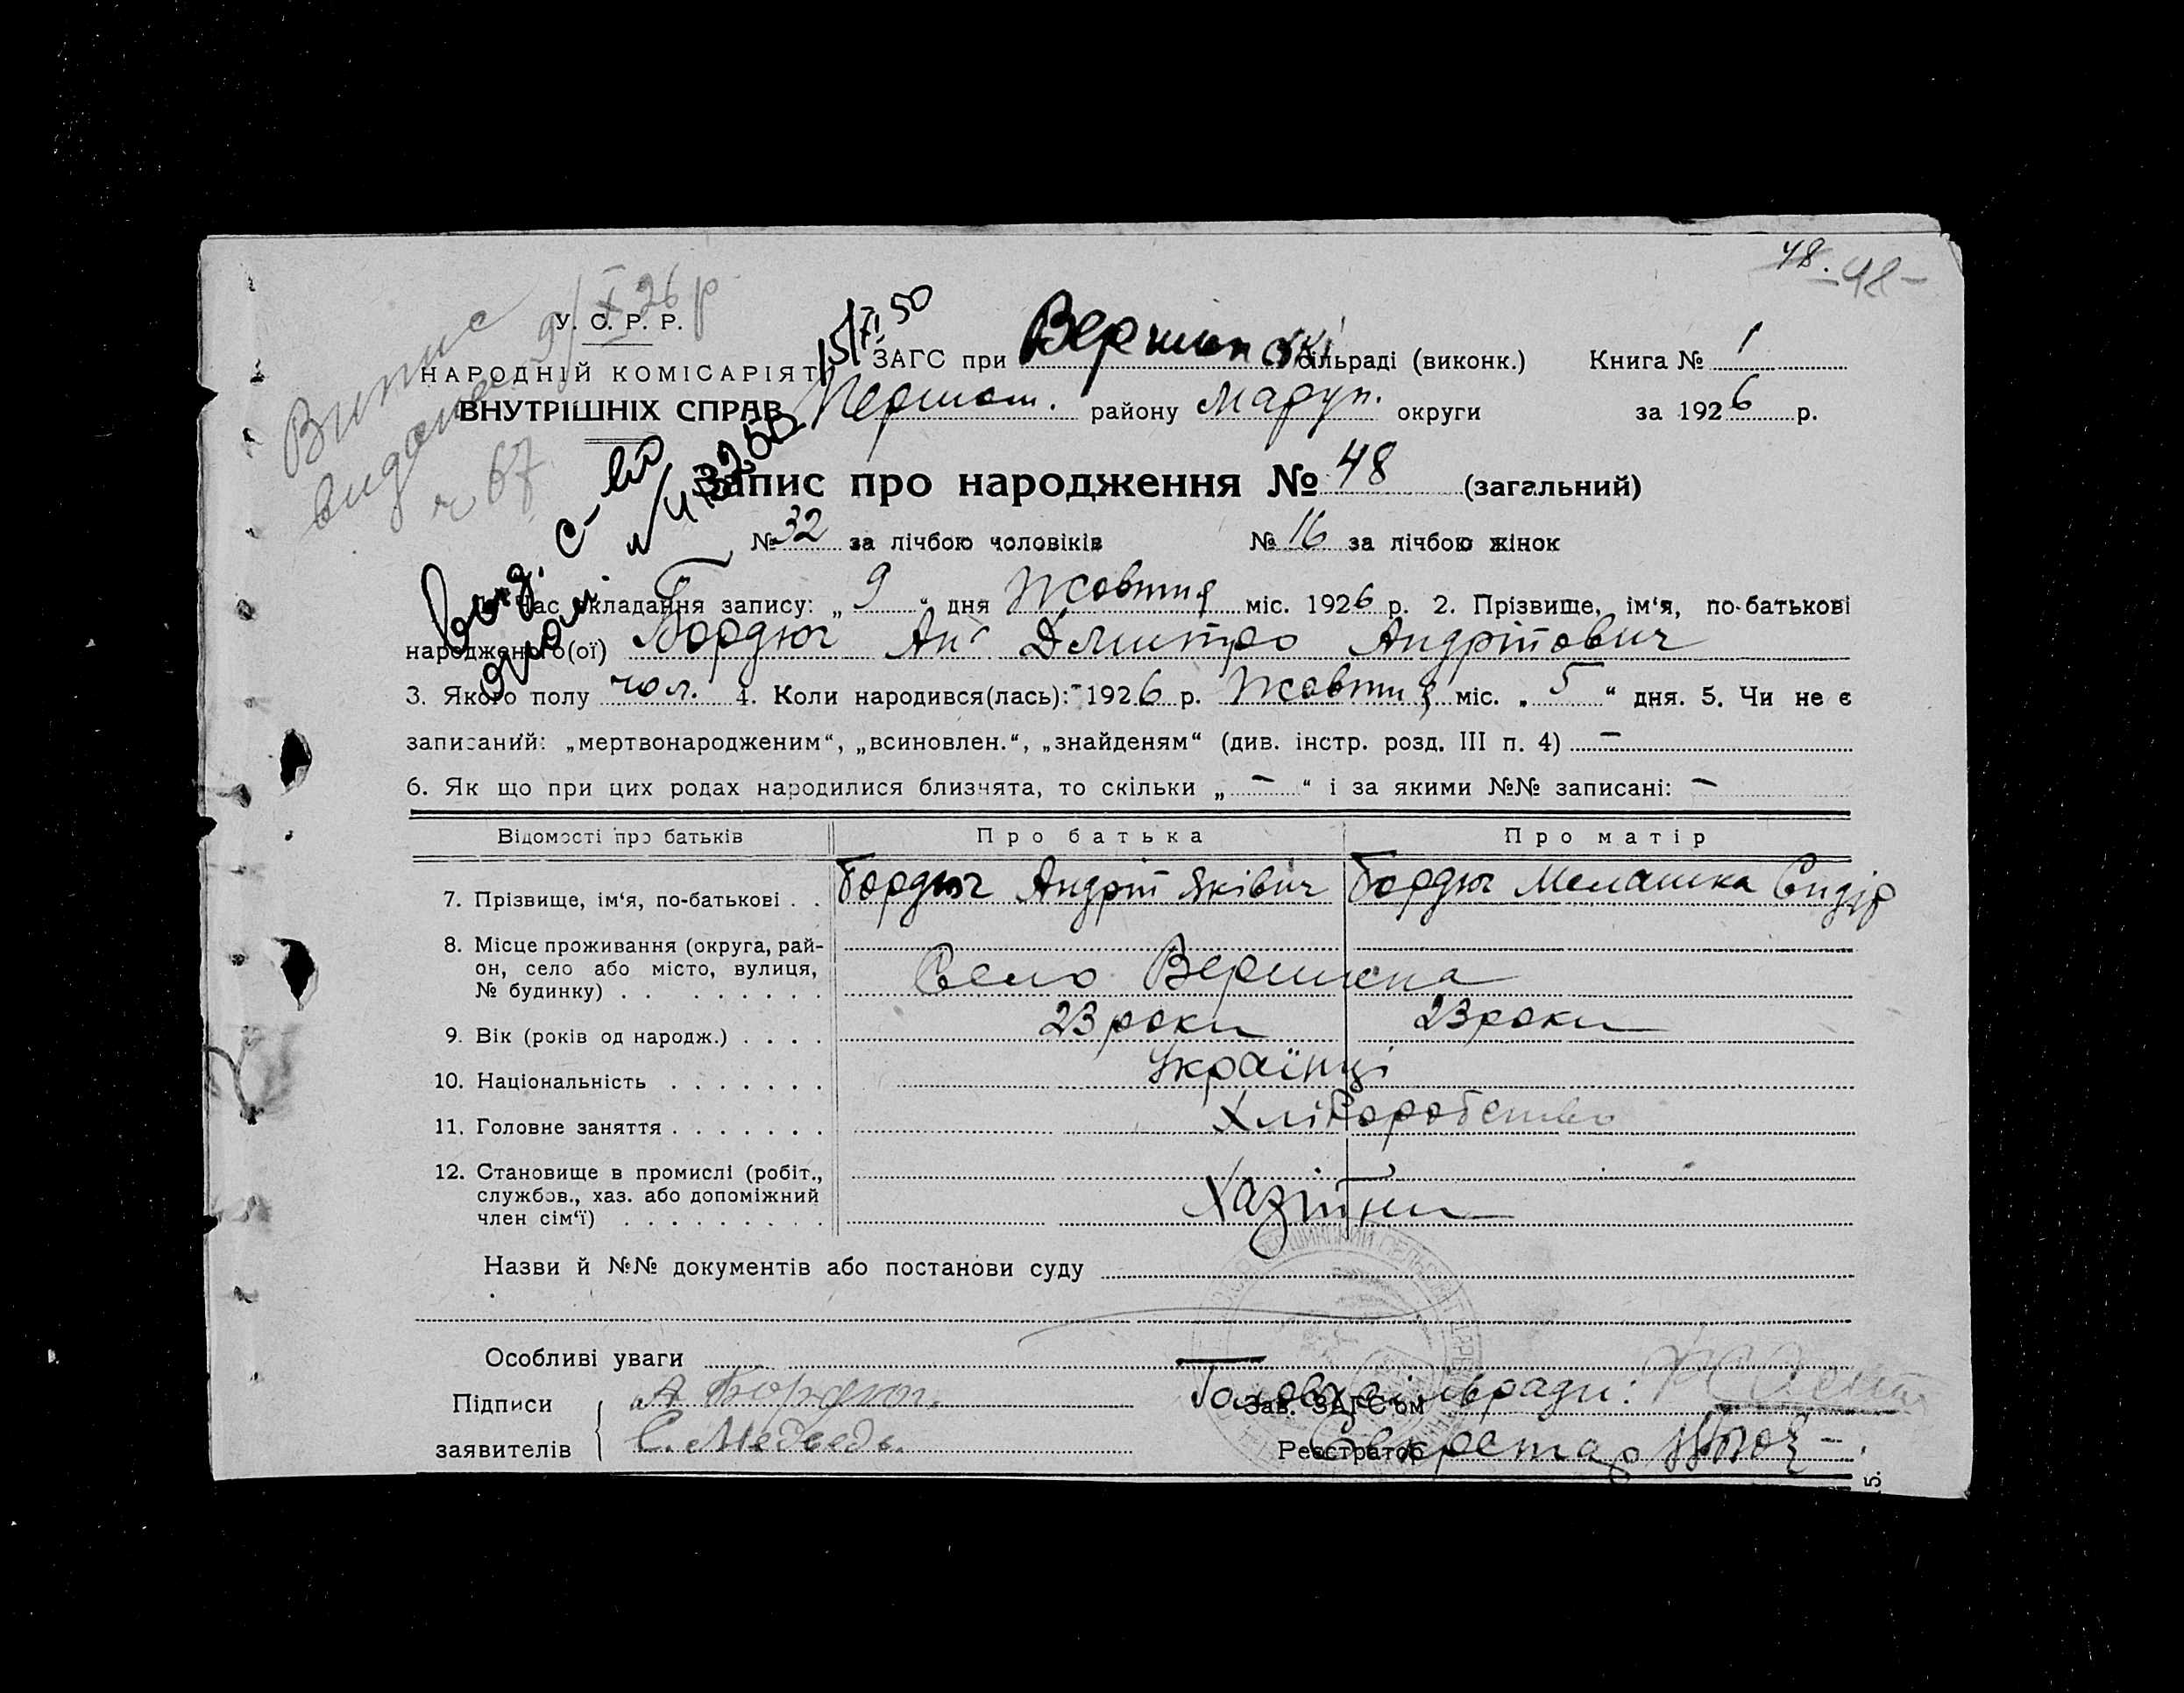 48. 48-
Випис
видано 9/X 26 р
ч 67
15/VI 50
У. С. Р. Р.
НАРОДНІЙ КОМІСАРІЯТ
ВНУТРІШНІХ СПРАВ
ЗАГС при Вершинській сільраді (виконк.) Книга № 1
Першот. району Маруп. округи за 1926 р.
Запис про народження № 48 (загальний)
№ 32 за лічбою чоловіків № 16 за лічбою жінок
Час складання запису: „ 9 “ дня Жовтня міс. 1926 р. 2. Прізвище, ім‘я, по-батькові
народженого(ої) Бордюг Дмитро Андрійович
3. Якого полу чол. 4. Коли народився(лась): 1926 р. Жовтня міс. „ 5 “ дня. 5. Чи не є
записаний: „мертвонародженим“, „всиновлен.“, „знайденям“ (див. інстр. розд. III п. 4) –
6. Як що при цих родах народилися близнята, то скільки „ – “ і за якими №№ записані: –
Відомості про батьків Про батька Про матір
7. Прізвище, ім‘я, по-батькові . . Бордюг Андрій Яківич Бордюг Мелашка Сидір
8. Місце проживання (округа, рай-
он, село або місто, вулиця,
№ будинку) . . . . . . . . . Село Вершина
9. Вік (років од народж.) . . . . 23 роки 23 роки
10. Національність . . . . . . . Українці
11. Головне заняття . . . . . . . Хліборобство
12. Становище в промислі (робіт.,
службов., хаз. або допоміжний
член сім‘ї) . . . . . . . . . Хазяїни
Назви й №№ документів або постанови суду
Особливі уваги
Підписи А Бордюг. Зав. ЗАГС‘ом Голова сільради:
заявителів С. Медведь. Реєстратор Секретар
5.